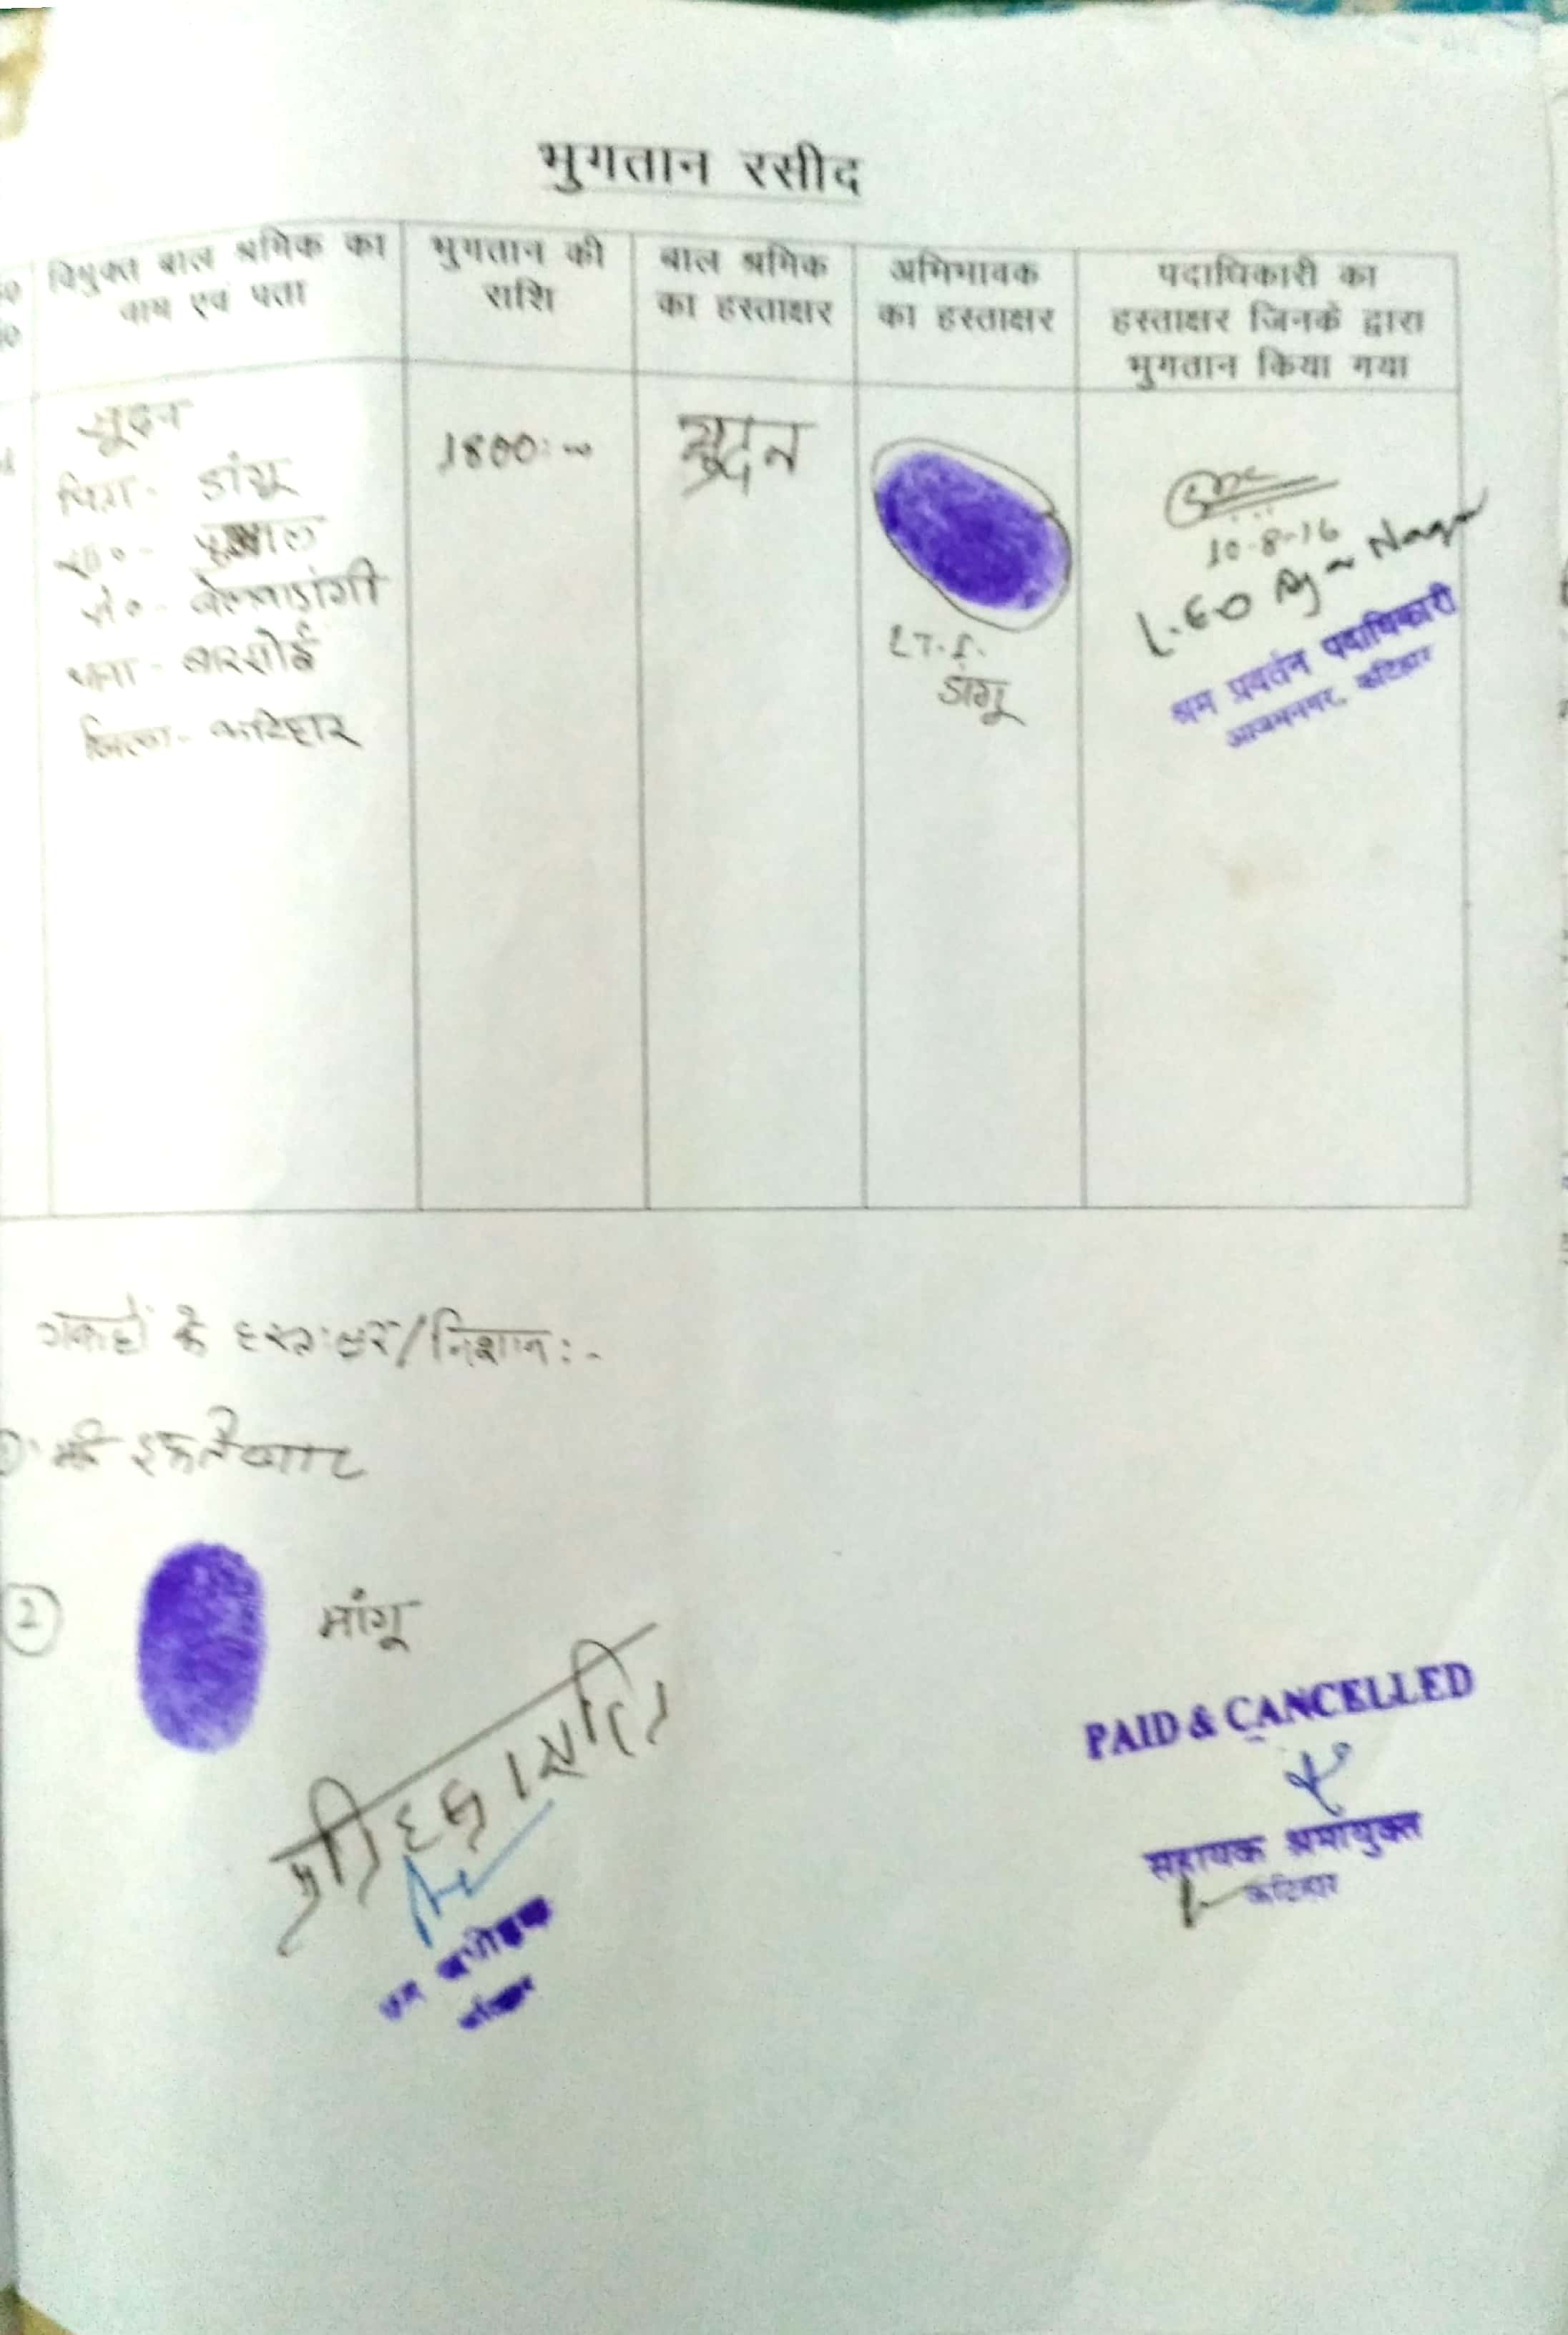 भुगतान रसीद
विमुक्त बाल श्रमिक का
नाम एवं पता
भुगतान की
राशि
बाल श्रमिक
का हस्ताक्षर
अभिभावक
का हस्ताक्षर
पदाधिकारी का
हस्ताक्षर जिनके द्वारा
भुगतान किया गया
सूदन
पिता - डांगू
सा०-
पो०- बेलवाडांगी
थाना - बारसोई
जिला - कटिहार
1800:00
सूदन
L.T.I.
डांगू
10-8-16
L.E.O Nagar
श्रम प्रवर्तन पदाधिकारी
आजमनगर, कटिहार
गवाहों के हस्ताक्षर/निशान:-
2
मांगू
PAID & CANCELLED
सहायक श्रमायुक्त
कटिहार